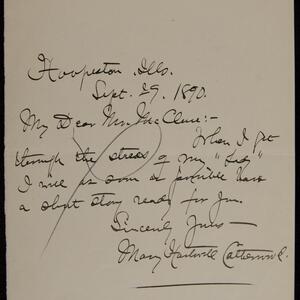 Hoopeston Ills.
Sept. 29. 1890.
My Dear Mr. McClure:-
When I get
through the stress of my "Lady"
I will as soon as possible have
a short story ready for you.
Sincerely Yours—
Mary Hartwell Catherwood.